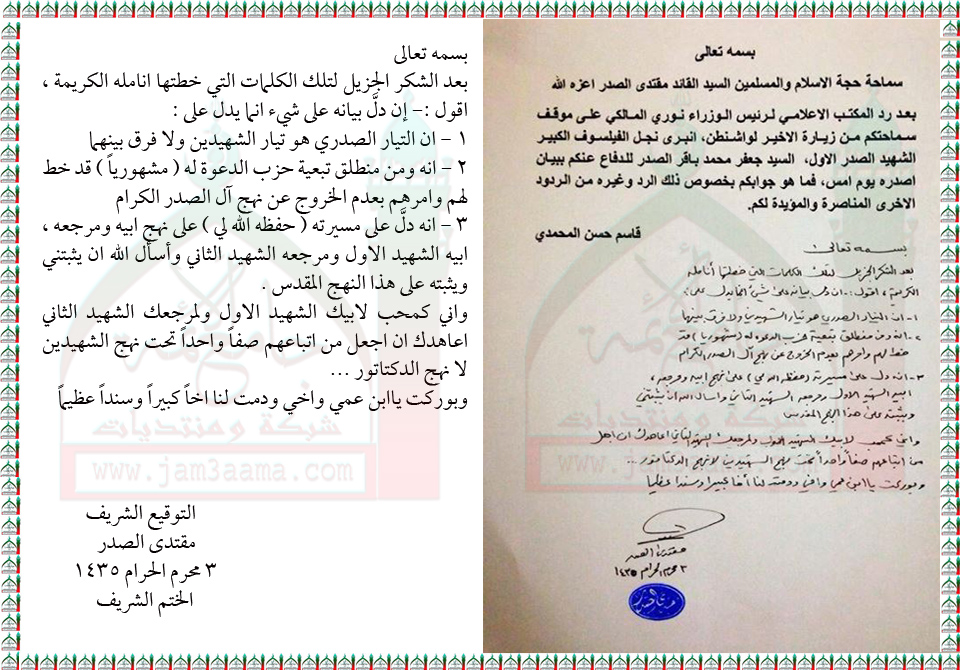 بسمه تعالى
سماحة حجة الاسلام والمسلمين السيد القائد مقتدى الصدر اعزه الله
بعد رد المكتب الاعلامي لرئيس الوزراء نوري المالكي على موقف
سماحتكم من زيارة الاخير لواشنطن، انبرى نجل الفيلسوف الكبير
الشهيد الصدر الاول، السيد جعفر محمد باقر الصدر للدفاع عنكم ببيان
اصدره يوم امس، فما هو جوابكم بخصوص ذلك الرد وغيره من الردود
الاخرى المناصرة والمؤيدة لكم.
قاسم حسن المحمدي
بسمه تعالى
بعد الشكر الجزيل لتلك الكلمات التي خطتها أنامله
الكريمة، اقول :- ان دل بيانه على شيء انما يدل على :
١- ان التيار الصدري هو تيار الشهيدين ولا فرق بينهما
٢- انه ومن منطلق تبعية حزب الدعوة له (مشهورياً) قد
خط لهم وامرهم بعدم الخروج عن نهج آل الصدر الكرام
٣- انه دل على مسيرته (حفظه الله لي) على نهج ابيه ومرجعه،
ابيه الشهيد الاول ومرجعه الشهيد الثاني واسأل الله ان يثبتني
ويثبته على هذا النهج المقدس
واني كمحب لابيك الشهيد الاول ولمرجعك الشهيد الثاني اعاهدك ان اجعل
من اتباعهم صفاً واحداً تحت نهج الشهيدين لا نهج الدكتاتور ...
وبوركت يا ابن عمي واخي ودمت لنا أخاً كبيراً وسنداً عظيماً
مقتدى الصدر
٣ محرم الحرام ١٤٣٥
بسمه تعالى
بعد الشكر الجزيل لتلك الكلمات التي خطتها انامله الكريمة ،
اقول :- إن دلَّ بيانه على شيء انما يدل على :
١ - ان التيار الصدري هو تيار الشهيدين ولا فرق بينهما
٢ - انه ومن منطلق تبعية حزب الدعوة له ( مشهورياً ) قد خط
لهم وامرهم بعدم الخروج عن نهج آل الصدر الكرام
٣ - انه دلَّ على مسيرته ( حفظه الله لي ) على نهج ابيه ومرجعه ،
ابيه الشهيد الاول ومرجعه الشهيد الثاني وأسأل الله ان يثبتني
ويثبته على هذا النهج المقدس .
واني كمحب لابيك الشهيد الاول ولمرجعك الشهيد الثاني
اعاهدك ان اجعل من اتباعهم صفاً واحداً تحت نهج الشهيدين
لا نهج الدكتاتور ...
وبوركت ياابن عمي واخي ودمت لنا اخاً كبيراً وسنداً عظيماً
التوقيع الشريف
مقتدى الصدر
٣ محرم الحرام ١٤٣٥
الختم الشريف
شبكة ومنتديات
www.jam3aama.com
شبكة ومنتديات
www.jam3aama.com